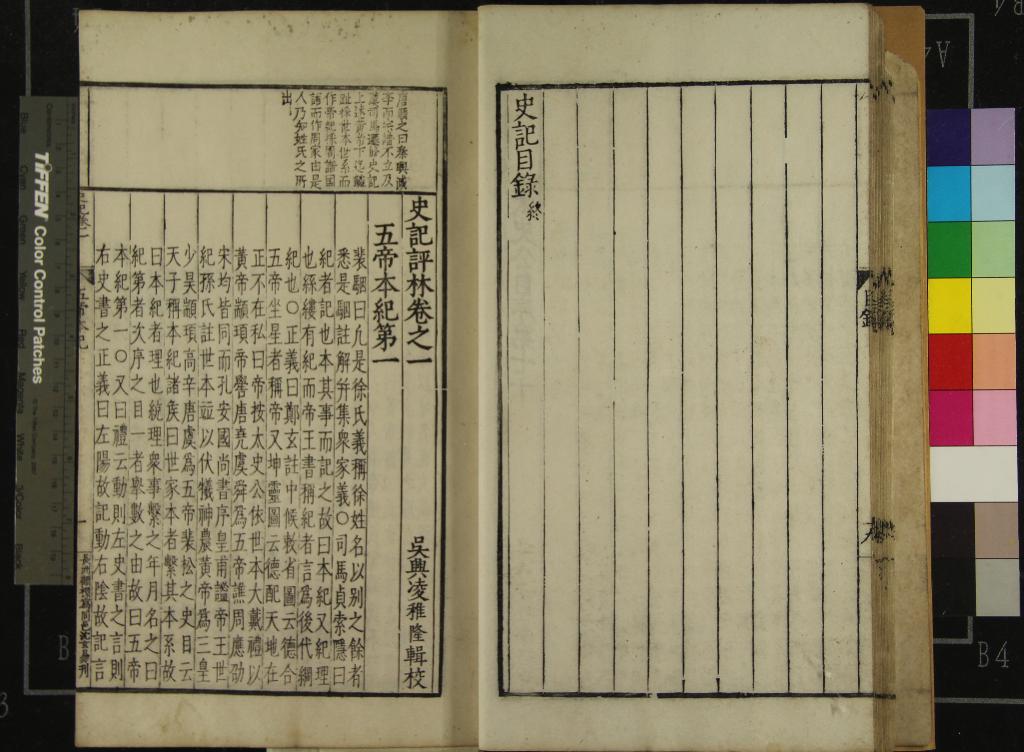 史記目錄 終
目錄
史記評林卷之一
吳興凌稚隆輯校
五帝本紀第一
裴駰曰凡是徐氏義稱徐姓名以別之餘者
悉是駰註解幷集衆家義〇司馬貞索隱曰
紀者記也本其事而記之故曰本紀又紀理
也絲縷有紀而帝王書稱紀者言爲後代綱
紀也〇正義曰鄭玄註中候敕省圖云德合
五帝坐星者稱帝又坤靈圖云德配天地在
正不在私曰帝按太史公依世本大戴禮以
黃帝顓頊帝嚳唐堯虞舜爲五帝譙周應劭
宋均皆同而孔安國尚書序皇甫謐帝王世
紀孫氏註世本竝以伏犧神農黃帝爲三皇
少昊顓頊高辛唐虞爲五帝裴松之史目云
天子稱本紀諸矦曰世家本者繫其本系故
曰本紀者理也統理衆事繫之年月名之曰
紀第者次序之目一者舉數之由故曰五帝
本紀第一〇又曰禮云動則左史書之言則
右史書之正義曰左陽故記動右陰故記言
五帝本紀
TIFFEN Color Control Patches
B4